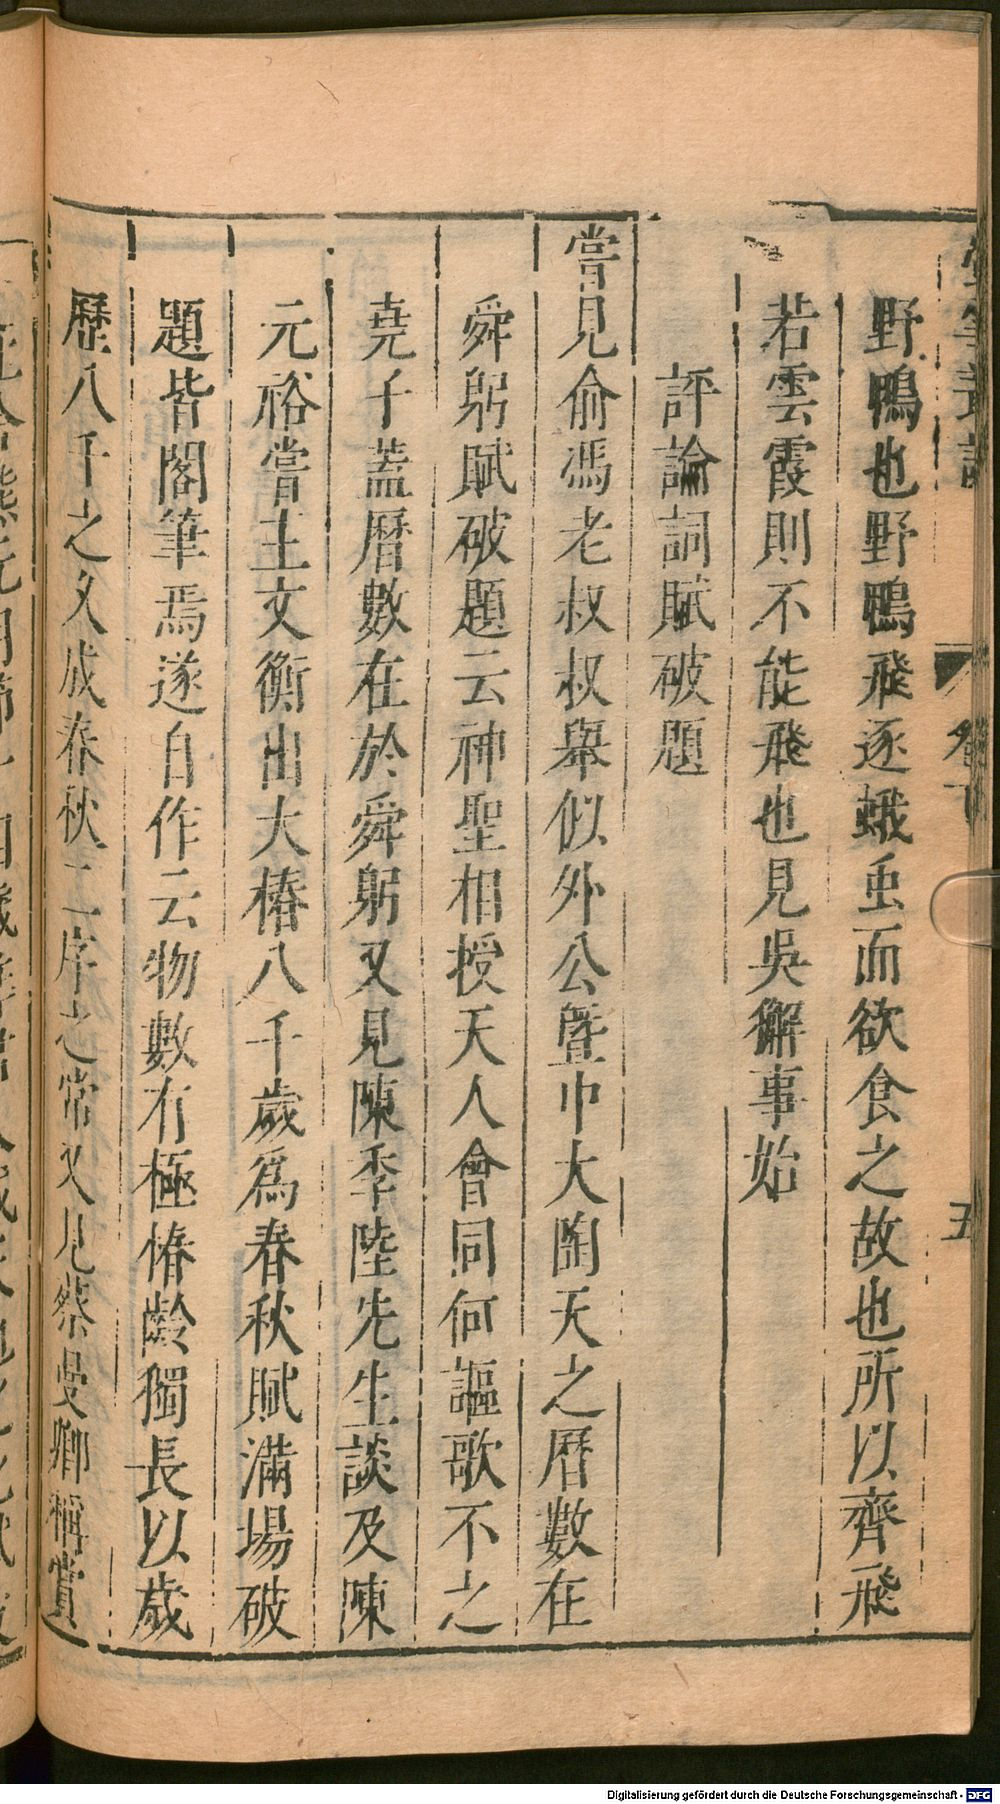 野鴨也野鴨飛逐蛾虫而欲食之故也所以齊飛
若雲霞則不能飛也見吳獬事始
評論詞賦破題
嘗見俞馮老叔叔舉似外公暨巾大陶天之曆數在
舜躬賦破題云神聖相授天人會同何謳歌不之
堯千蓋曆數在於舜躬又見陳季陸先生談及陳
元裕嘗主文衡出大椿八千歲爲春秋賦滿場破
題皆閣筆焉遂自作云物數有極椿齡獨長以歲
歷八千之久成春秋二序之常又見蔡曼卿稱賞
卷下
五
Digitalisierung gefördert durch die Deutsche Forschungsgemeinschaft - DFG